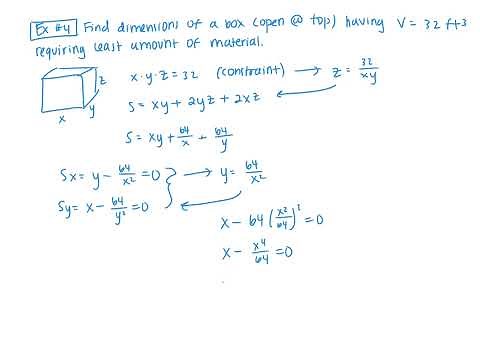 Ex #4 Find dimensions of a box (open @ top) having V = 32 ft3
requiring least amount of material.
x·y·z = 32 (constraint) → z = 32/xy
z
x
y
S = xy + 2yz + 2xz
S = xy + 64/x + 64/y
Sx = y - 64/x² = 0 → y = 64/x²
Sy = x - 64/y² = 0
x - 64(x²/64)² = 0
x - x⁴/64 = 0